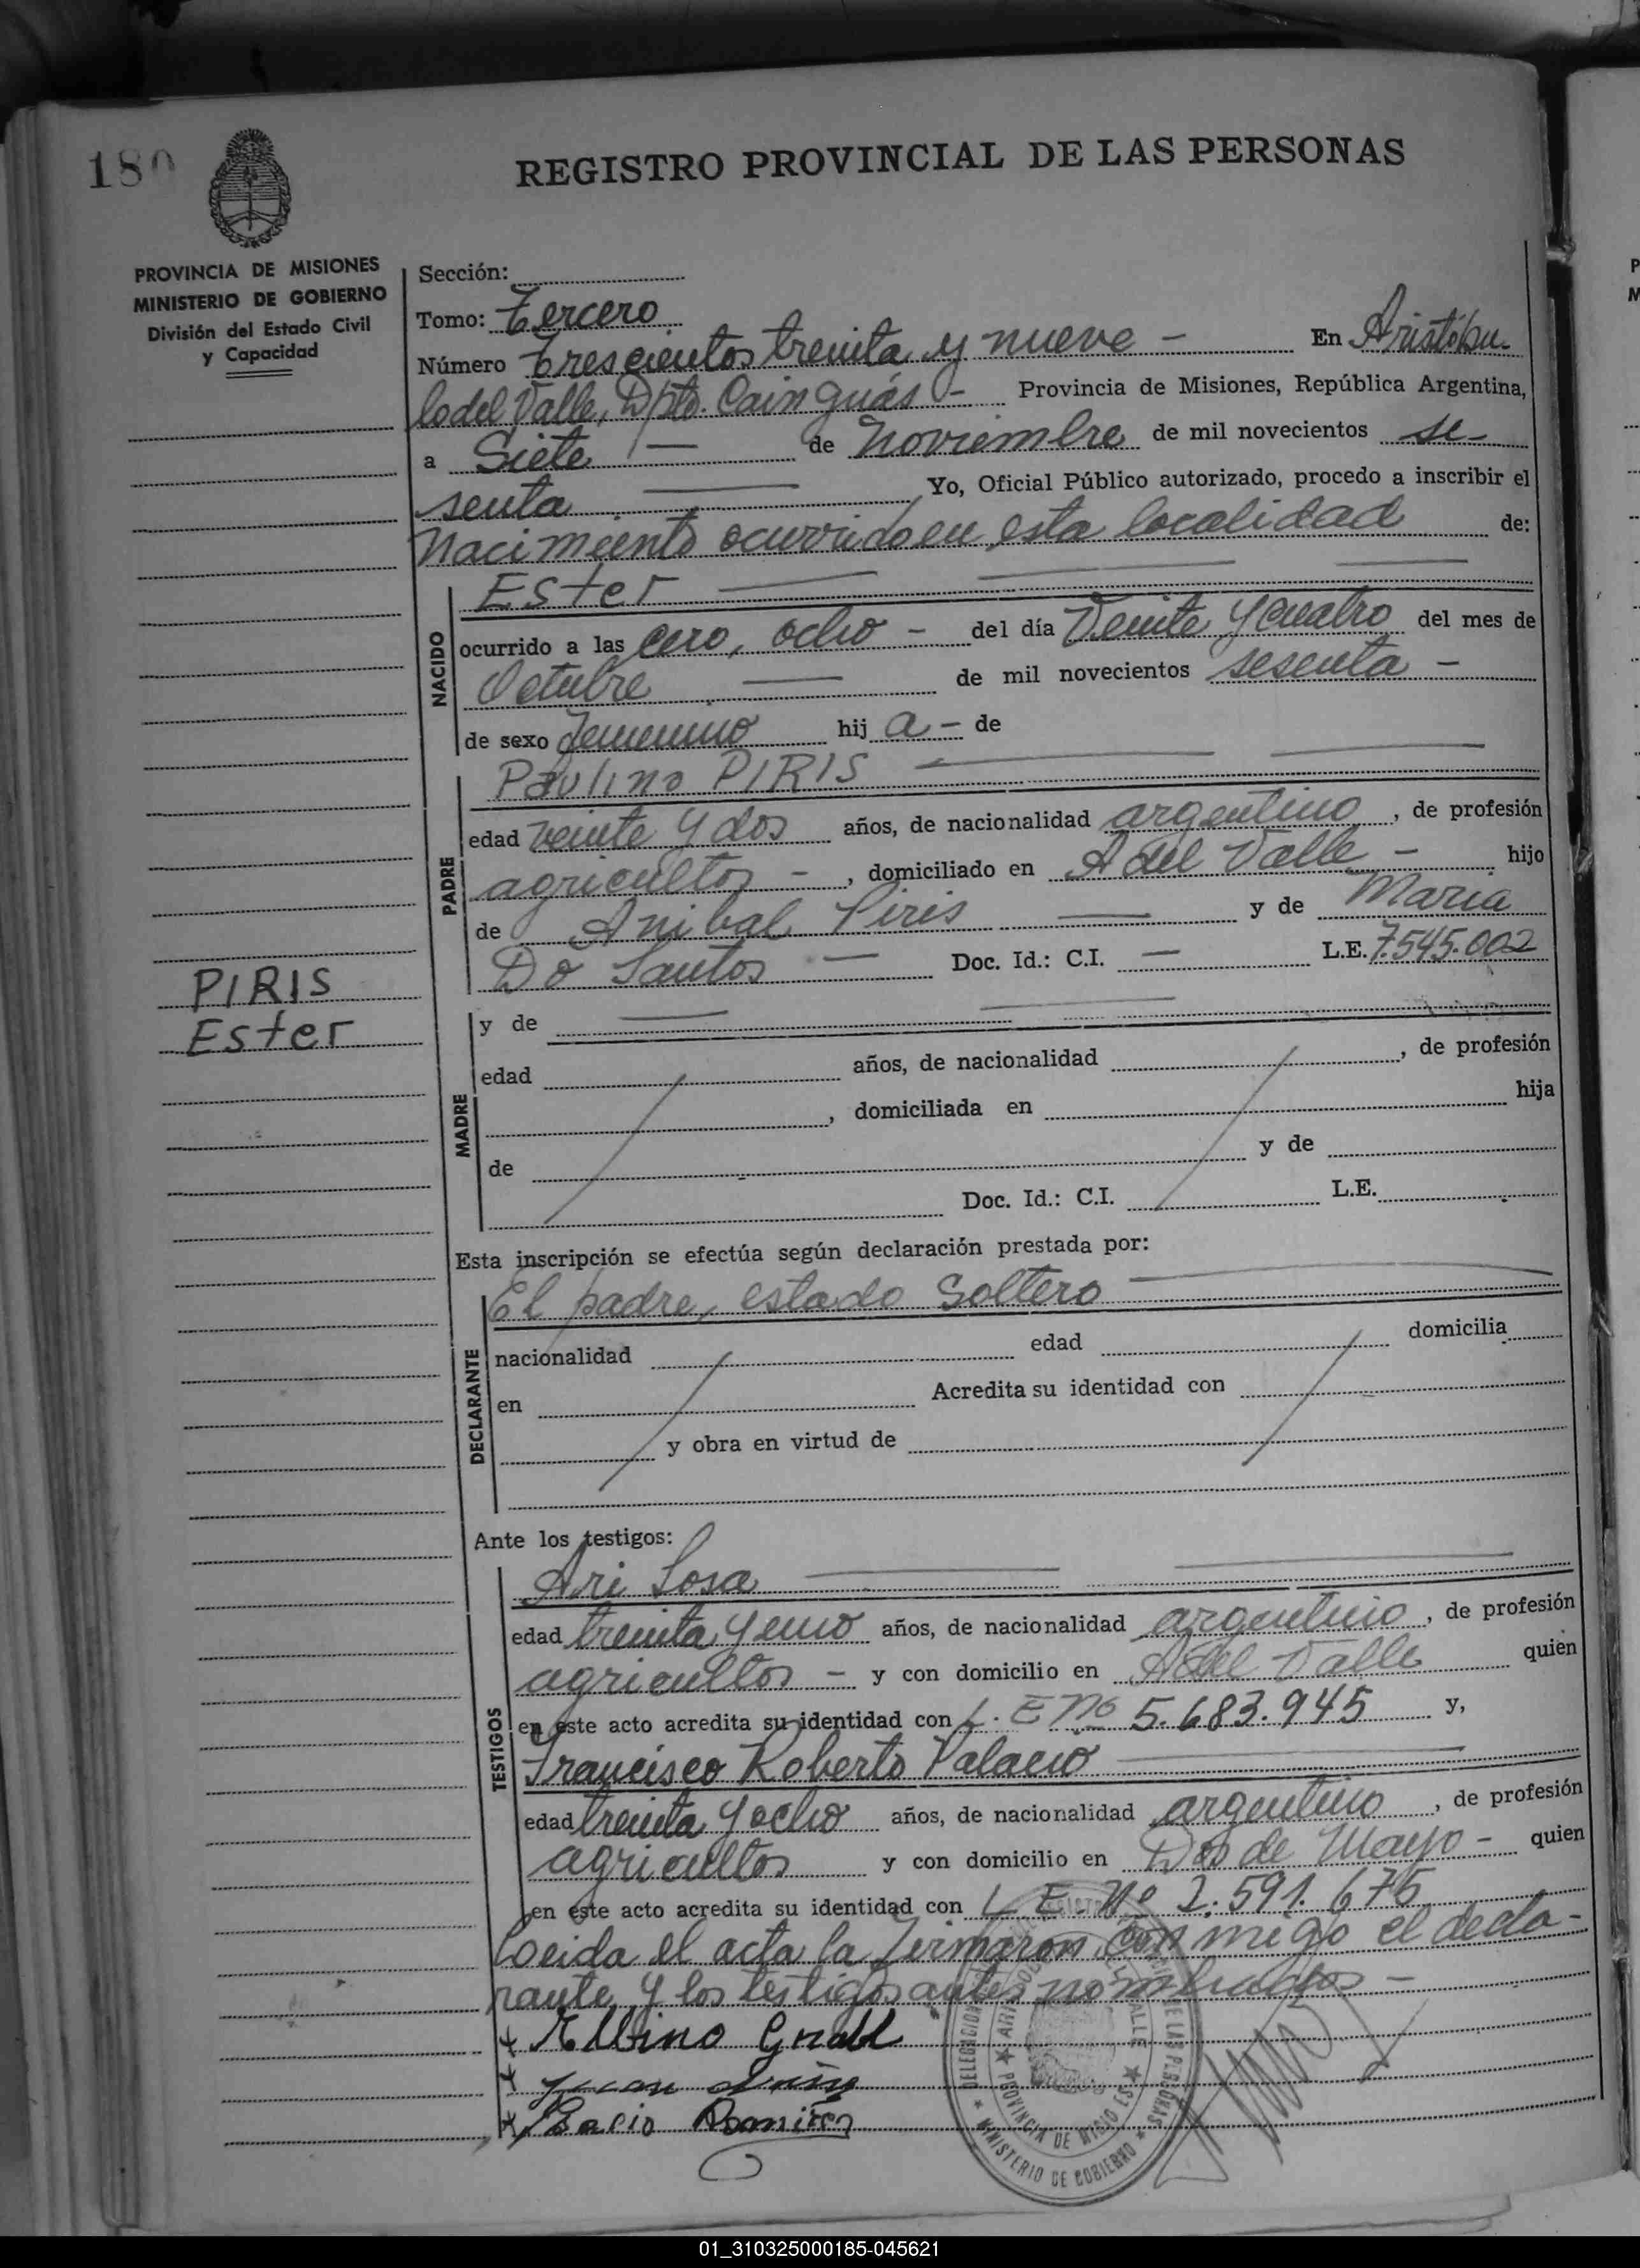 180
REGISTRO PROVINCIAL DE LAS PERSONAS
PROVINCIA DE MISIONES
MINISTERIO DE GOBIERNO
División del Estado Civil
y Capacidad
Sección:
Tomo: Tercero
Número Trescientos treinta y nueve - En Aristóbu-
lo del Valle, Dpto. Cainguás - Provincia de Misiones, República Argentina,
a Siete — de Noviembre de mil novecientos se-
senta — Yo, Oficial Público autorizado, procedo a inscribir el
Nacimiento ocurrido en esta localidad de:
NACIDO
Ester
ocurrido a las cero, ocho - del día Veinte y cuatro del mes de
Octubre — de mil novecientos sesenta -
de sexo femenino hij a - de
PADRE
Paulino PIRIS
edad veinte y dos años, de nacionalidad argentino, de profesión
agricultor -, domiciliado en A del Valle - hijo
de Anibal Piris — y de Maria
Do Santos — Doc. Id.: C.I. — L.E. 7.545.002
PIRIS
Ester
MADRE
y de —
edad años, de nacionalidad , de profesión
, domiciliada en hija
de y de
Doc. Id.: C.I. L.E.
Esta inscripción se efectúa según declaración prestada por:
DECLARANTE
El padre, estado Soltero
nacionalidad edad domicilia
en Acredita su identidad con
y obra en virtud de
Ante los testigos:
TESTIGOS
Ari Sosa
edad treinta y uno años, de nacionalidad argentino, de profesión
agricultor - y con domicilio en A del Valle quien
en este acto acredita su identidad con L. E Nº 5.683.945 y,
Francisco Roberto Palacio
edad treinta y ocho años, de nacionalidad argentino, de profesión
agricultor y con domicilio en Dos de Mayo - quien
en este acto acredita su identidad con L E. Nº 2.591.675
Loeida el acta la firmaron conmigo el decla-
rante y los testigos antes nombrados -
MINISTERIO DE GOBIERNO
PROVINCIA DE MISIONES
Ramirez
01_310325000185-045621